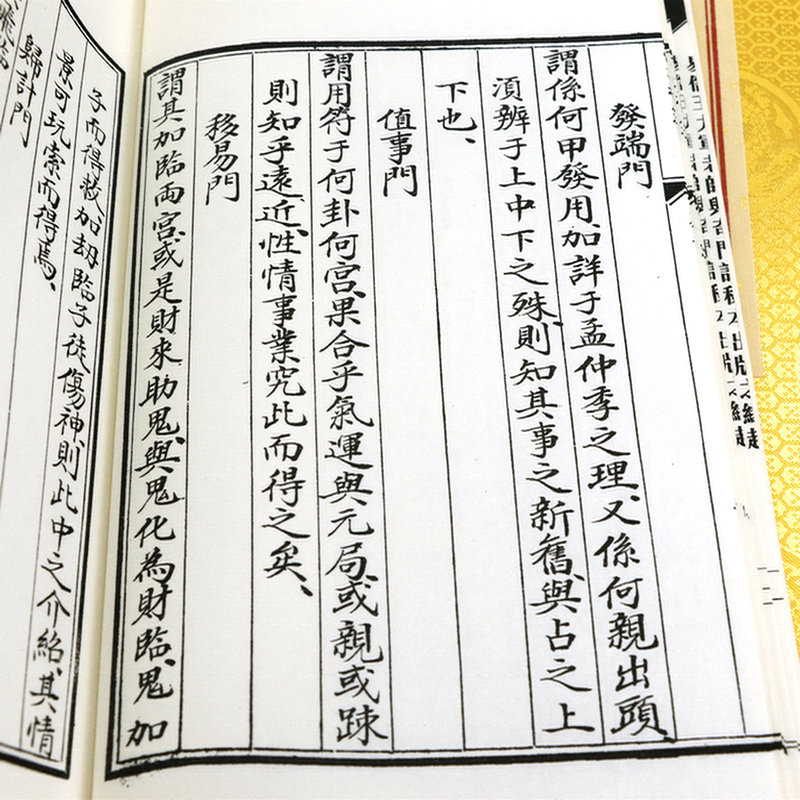 發端門
謂係何甲發用、加詳于孟仲季之理、又係何親出頭、
須辨于上中下之殊、則知其事之新舊、與占之上
下也、
值事門
謂用符于何卦何宮、果合乎氣運與元局、或親或踈
則知乎遠近、性情事業究此而得之矣、
移易門
謂其加臨兩宮、或是財來助鬼、與鬼化為財臨、鬼加
子而得救、加刼臨子徒傷神、則此中之介紹、其情
景可玩索而得焉、
歸計門